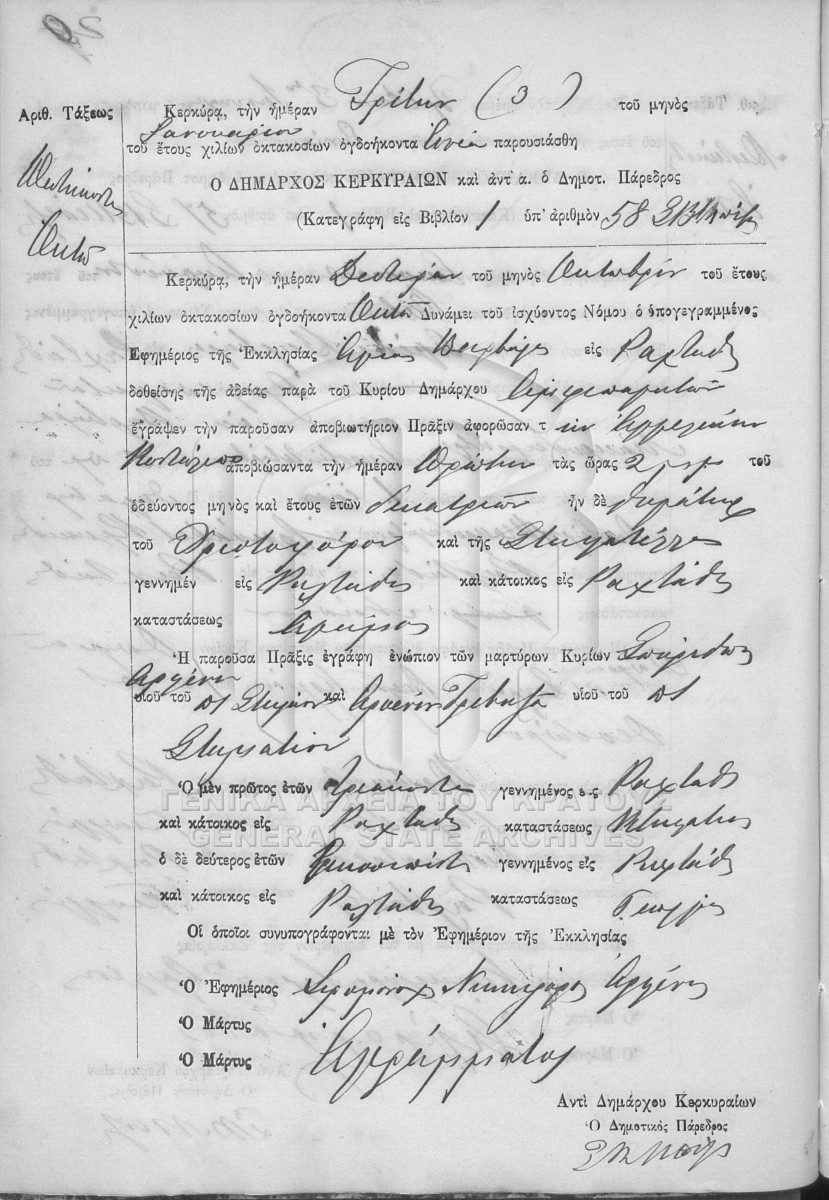 Αριθ. Τάξεως
Κερκύρα, τὴν ἡμέραν Τρίτην (3) τοῦ μηνὸς
Ιανουαρίου
τοῦ ἔτους χιλίων ὀκτακοσίων ὀγδοήκοντα ἐννέα παρουσιάσθη
Ο ΔΗΜΑΡΧΟΣ ΚΕΡΚΥΡΑΙΩΝ καὶ ἀντ' α. ὁ Δημοτ. Πάρεδρος
(Κατεγράφη εἰς Βιβλίον 1 ὑπ' ἀριθμὸν 58
Ὀκτώ
Κερκύρα, τὴν ἡμέραν Δευτέραν τοῦ μηνὸς Ὀκτωβρίου τοῦ ἔτους
χιλίων ὀκτακοσίων ὀγδοήκοντα Ὀκτώ Δυνάμει τοῦ ἰσχύοντος Νόμου ὁ ὑπογεγραμμένος
Ἐφημέριος τῆς Ἐκκλησίας Ἁγίας Βαρβάρας εἰς Ραχτάδες
δοθείσης τῆς ἀδείας παρὰ τοῦ Κυρίου Δημάρχου
ἔγραψεν τὴν παροῦσαν ἀποβιωτήριον Πρᾶξιν ἀφορῶσαν τ ὴν
ἀποβιώσαντα τὴν ἡμέραν Πρώτην τὰς ὥρας 2 μ.μ. τοῦ
ὁδεύοντος μηνὸς καὶ ἔτους ἐτῶν δεκατριῶν ἦν δὲ θυγάτηρ
τοῦ Χριστοφόρου καὶ τῆς Σταματέλλας
γεννημέν εἰς Ραχτάδες καὶ κάτοικος εἰς Ραχτάδες
καταστάσεως ἄγαμος
Ἡ παροῦσα Πρᾶξις ἐγράφη ἐνώπιον τῶν μαρτύρων Κυρίων Σπυρίδων
Αργένη
υἱοῦ τοῦ ποτ Σταμάτη καὶ Αρσένην υἱοῦ τοῦ ποτ
Σταματίου
Ὁ μὲν πρῶτος ἐτῶν τριάκοντα γεννημένος εἰς Ραχτάδες
καὶ κάτοικος εἰς Ραχτάδες καταστάσεως Κτηματίας
ὁ δὲ δεύτερος ἐτῶν εἰκοσιπέντε γεννημένος εἰς Ραχτάδες
καὶ κάτοικος εἰς Ραχτάδες καταστάσεως Γεωργός
Οἱ ὁποῖοι συνυπογράφονται μὲ τὸν Ἐφημέριον τῆς Ἐκκλησίας
Ὁ Ἐφημέριος Ιερομόναχ Νικηφόρος Αργένης
Ὁ Μάρτυς
Ὁ Μάρτυς Ἀγράμματοι
Αντὶ Δημάρχου Κερκυραίων
Ὁ Δημοτικὸς Πάρεδρος
ΓΕΝΙΚΑ ΑΡΧΕΙΑ ΤΟΥ ΚΡΑΤΟΥΣ
GENERAL STATE ARCHIVES